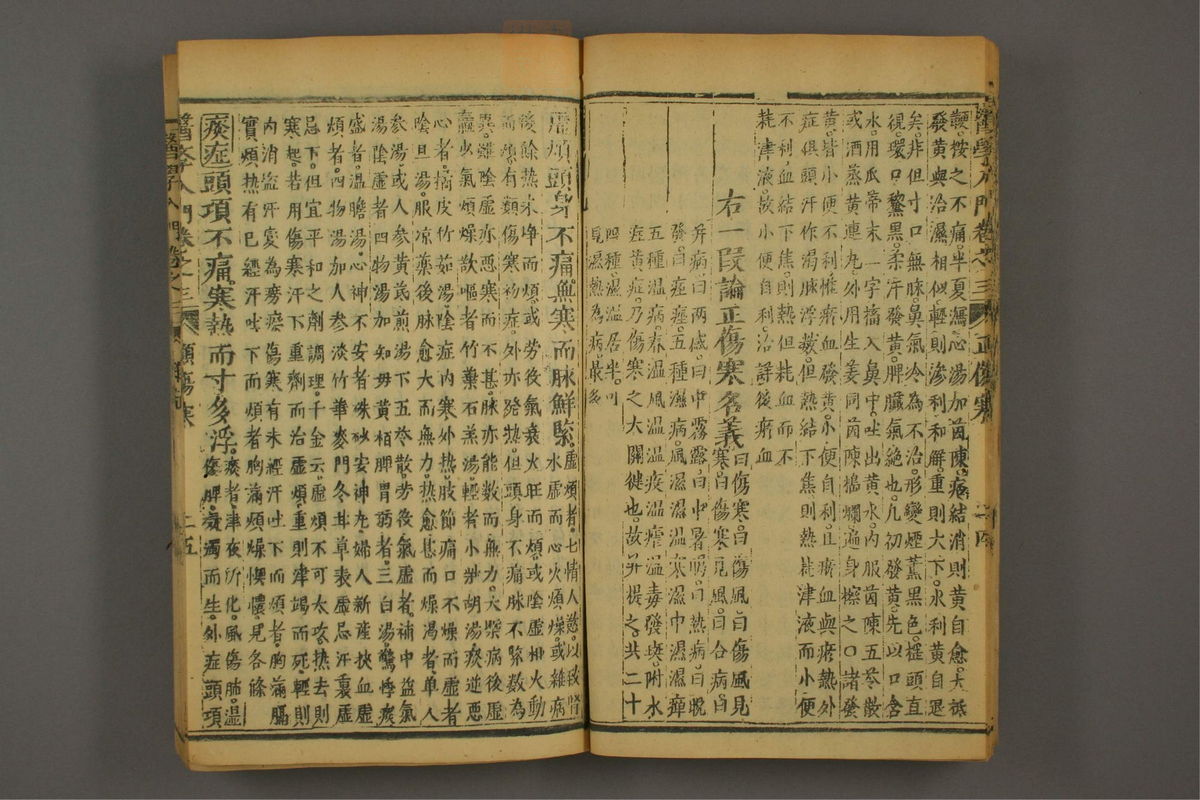 鞕按之不痛半夏瀉心湯加茵陳痞結消則黃自愈大抵
發黃與治濕相似輕則滲利和解重則大下水利黃自退
矣非但寸口無脉鼻氣冷為不治形變煙薰黑色搖頭直
視環口黧黑柔汗發黃脾臟氣絕也凡初發黃先以口含
水用瓜蒂末一字搐入鼻中吐出黃水內服茵陳五苓散
或酒蒸黃連丸外用生姜同茵陳搗爛遍身擦之○諸發
黃皆小便不利惟瘀血發黃小便自利且瘀血與瘀熱外
症俱頭汗作渴脉浮數但熱結下焦則熱耗津液而小便
不利血結下焦則熱但耗血而不
耗津液故小便自利治詳後瘀血
右一段論正傷寒名義曰傷寒曰傷風曰傷風見
寒曰傷寒見風曰合病曰
并病曰兩感曰中霧露曰中暑暍曰熱病曰晚
發曰痙症五種濕病風濕濕溫寒濕中濕濕痺
五種溫病春溫風溫溫疫溫瘧溫毒發斑附水
症黃症乃傷寒之大關健也故并提之共二十
四種濕溫居半可
見濕熱為病最多
虛煩頭身不痛無寒而脉鮮緊虛煩者七情人慾以致腎
水虛而心火煩燥或雜病
後餘熱未凈而煩或勞後氣衰火旺而煩或陰虛相火動
而煩有類傷寒初症外亦發熱但頭身不痛脉不緊數為
異雖陰虛亦惡寒而不甚脉亦能數而無力大槩病後虛
羸少氣煩燥欬嘔者竹葉石羔湯輕者小柴胡湯痰逆惡
心者橘皮竹茹湯陰症內寒外熱肢節痛口不燥而虛者
陰旦湯服涼藥後脉愈大而無力熱愈甚而燥渴者单人
參湯或人參黃芪煎湯下五苓散勞後氣虛者補中益氣
湯陰虛者四物湯加知母黃栢脾胃弱者三白湯驚悸痰
盛者溫膽湯心神不安者硃砂安神丸婦人新產挾血虛
煩者四物湯加人參淡竹葉麥門冬甘草表虛忌汗裏虛
忌下但宜平和之劑調理千金云虛煩不可太攻熱去則
寒起若用傷寒汗下重劑而治虛煩重則津竭而死輕則
內消盜汗變為勞瘵傷寒有未經汗吐下而煩者胸滿膈
實煩熱有已經汗吐下而煩者胸滿煩燥懊憹見各條
痰症頭項不痛寒熱而寸多浮痰者津液所化風傷肺溫
傷脾凝濁而生外症頭項
醫學入門卷之三 正傷寒
醫學入門卷之三 類傷寒
二五